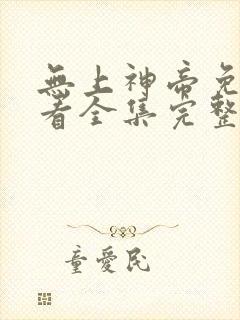 無上神帝免
看全集完整
童愛民